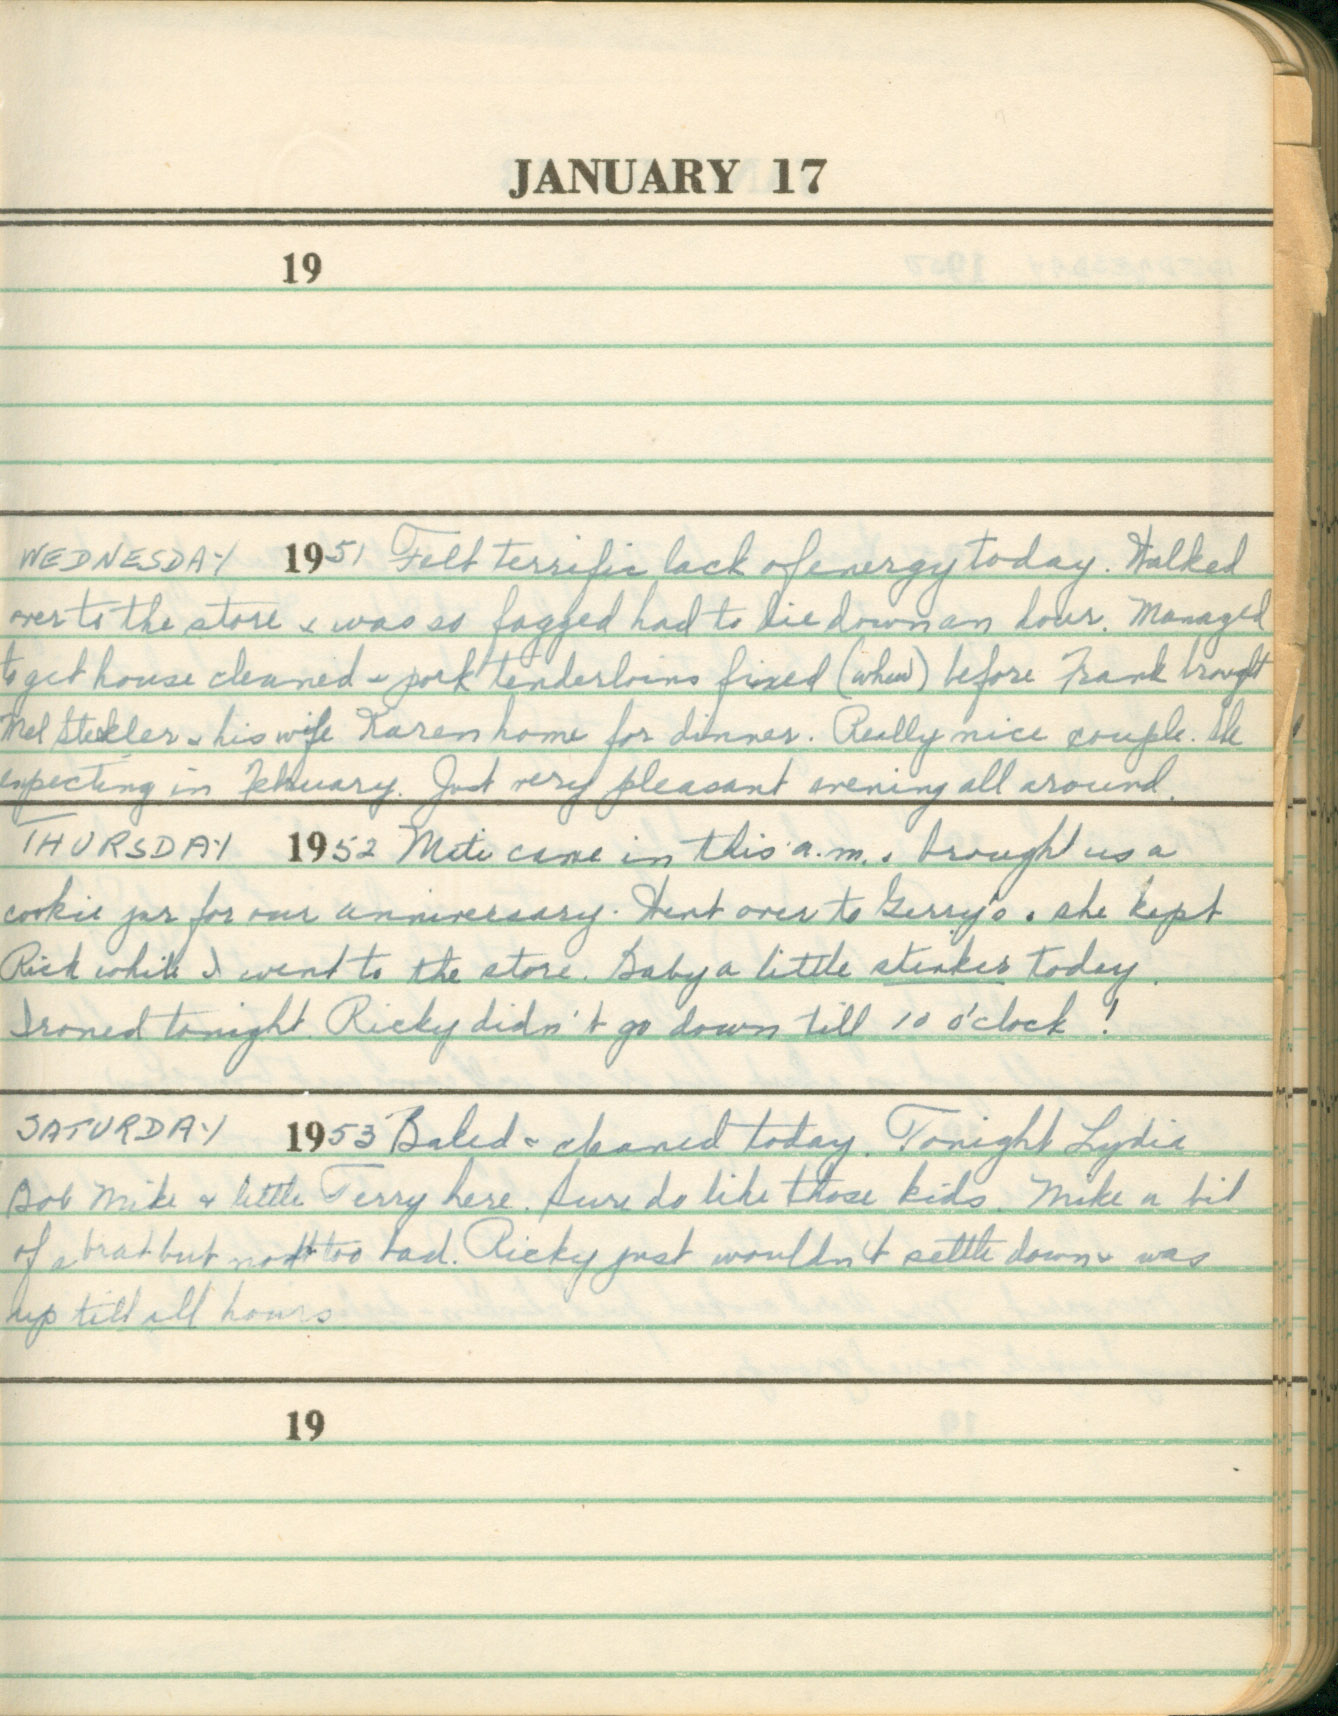 JANUARY 17
19
WEDNESDAY 1951 Felt terrific lack of energy today. Walked
over to the store & was so fagged had to lie down an hour. Managed
to get house cleaned & pork tenderloins fixed (whew) before Frank brought
Mel & his wife Karen home for dinner. Really nice couple. She
expecting in February. Just very pleasant evening all around.
THURSDAY 1952 came in this a.m. & brought us a
cookie jar for our anniversary. Went over to Gerry's & she kept
Rick while I went to the store. Baby a little stinker today.
Ironed tonight. Ricky didn't go down till 10 o'clock!
SATURDAY 1953 Baked & cleaned today. Tonight Lydia
Bob Mike & little Terry here. Sure do like those kids. Mike a bit
of a brat but not too bad. Ricky just wouldn't settle down & was
up till all hours.
19